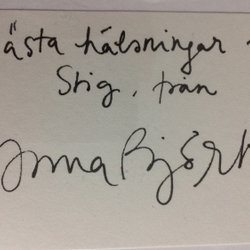 ästa hälsningar
Stig, från
Anna Björk